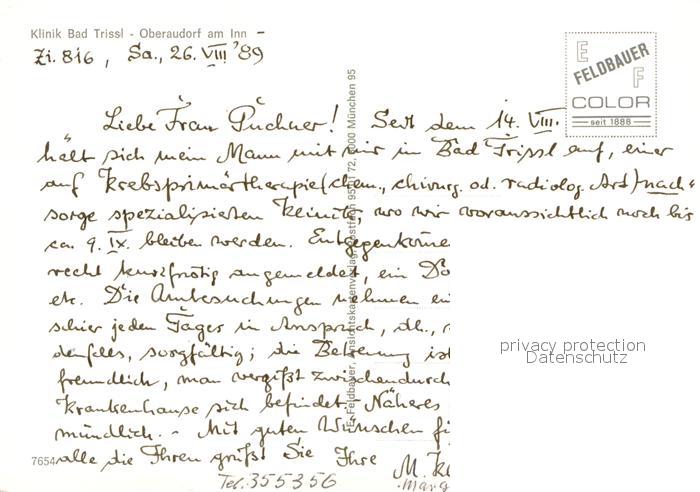 Klinik Bad Trissl - Oberaudorf am Inn -
Zi. 816, Sa., 26. VIII '89
E
FELDBAUER
F
COLOR
seit 1888
Liebe Frau Puchner! Seit dem 14. VIII.
hält sich mein Mann mit mir in Bad Trissl auf, einer
auf Krebsprimärtherapie (chem., chirurg. od. radiolog. Art) nach-
sorge spezialisierten Klinik, wo wir voraussichtlich noch bis
ca. 9. IX. bleiben werden. Entgegenkomme
recht kurzfristig angemeldet, ein Do
etc. Die Untersuchungen nehmen ei
schier jeden Tages in Anspruch, dh.,
sorgfältig; die Betreuung ist
freundlich, man vergißt zwischendurch
Krankenhause sich befindet. Näheres
mündlich. - Mit guten Wünschen fü
alle die Ihren grüßt Sie Ihre M.
7654
Tel. 355356
E. Feldbauer, Ansichtskartenverlag, Postfach 95 01 72, 8000 München 95
privacy protection
Datenschutz